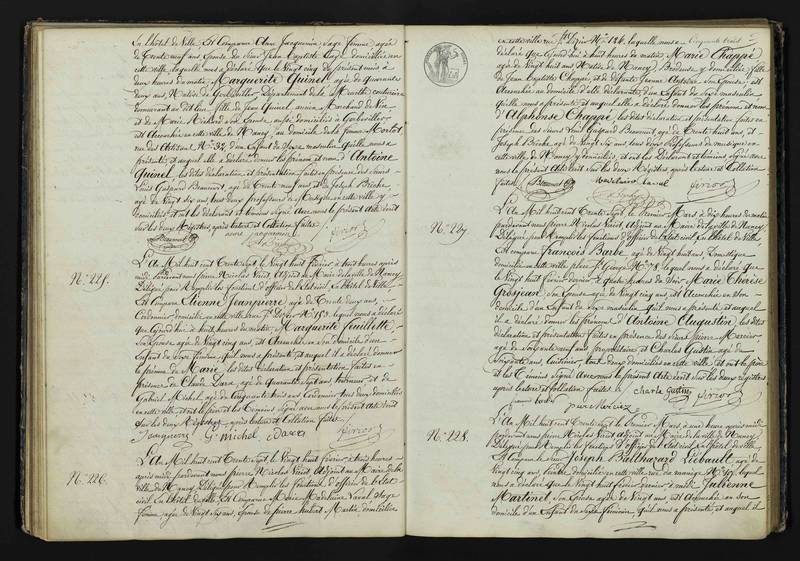 En l'hôtel de Ville, Est Comparue Anne Jacquemin Sage femme agée
de Trente neuf ans Epouse du Sieur Jean Baptiste domiciliée en
cette ville, laquelle nous a déclaré que le Vingt cinq du présent mois à
heures du matin, Marguerite Quinel, agée de quarante
deux ans, Native de Département de la Meurthe couturière
demeurant au dit lieu fille de Jean Quinel ancien Marchand de Vin
et de Marie Richard son Epouse, aussi domiciliés à
est Accouchée en cette ville de Nancy, au domicile de la femme Mortet
rue des Artisans N.° 32, d'un Enfant de Sexe masculin qu'elle nous a
présenté, et auquel elle a déclaré donner les prénom et nom d'Antoine
Quinel, les dites déclaration et présentation faites en présence des Sieurs
Louis Gaspard Beaumont, agé de Trente neuf ans, et de Joseph Briche
agé de Vingt six ans, tous deux professeurs de Musique en cette ville y
domiciliés, et ont les déclarant et témoins Signé Avec nous le présent acte écrit
Sur les deux Régistres, après lecture et Collation faites.
N.° 225.
L'An Mil huit cent Trente Sept, le Vingt huit Février, à trois heures après
midi, Pardevant nous pierre Nicolas Noirot, Adjoint au Maire de la ville de Nancy
Délégué pour Remplir les fonctions d'officier de l'état civil, En l'hôtel de Ville,
Est Comparu Etienne Jeanpierre agé de Trente deux ans,
Cordonnier, domicilié en cette ville rue St. Dizier N.° 153, lequel nous a déclaré
que aujourd'hui à huit heures du matin, Marguerite Feuillette,
Son Epouse agée de Vingt cinq ans, est Accouchée en son domicile d'un
Enfant du Sexe féminin, qu'il nous a présenté et auquel il a déclaré donner
le prénom de Marie, les dites déclaration et présentation faites en
présence de Claude Dara agé de Quarante Sept ans, et de
Gabriel Michel, agé de Cinquante trois ans Cordonnier, tous deux domiciliés
en cette ville, et ont le père et les témoins Signé avec nous le présent acte écrit
Sur les deux Régistres, après lecture et Collation faites.
Jeanpierre G. Michel Dara
N.° 226.
L'An Mil huit cent Trente Sept, le Vingt huit Février, à trois heures
après midi pardevant nous pierre Nicolas Noirot Adjoint au Maire de la
ville de Nancy, Délégué pour Remplir les fonctions d'officier de l'état
civil, En l'hôtel de ville, Est Comparue Marie Madelaine Laval Sage
femme agée de Vingt Six ans, Epouse de pierre Martin domiciliée
en cette ville rue St. Dizier N.° 126, laquelle nous a
déclaré que Aujourd'hui à huit heures du matin Marie Chappé
agée de Vingt huit ans Native de Nancy, Brodeuse y domiciliée, fille
de Jean Baptiste Chappé, et de défunte Jeanne Antoine, Son Epouse, est
Accouchée au domicile d'elle déclarante, d'un Enfant du Sexe masculin
qu'elle nous a présenté et auquel elle a déclaré donner les prénom et nom
d'Alphonse Chappé, les dites déclaration et présentation faites en
présence des sieurs Louis Gaspard Beaumont, agé de Trente neuf ans, et
Joseph Briche agé de Vingt Six ans, tous deux Professeurs de musique en
cette ville de Nancy y domiciliés, et ont les Déclarant et témoins Signé Avec
nous le présent Acte écrit Sur les deux Régistres, après lecture et Collation
faites.
N.° 227
L'An Mil huit cent Trente Sept, le Premier Mars, à dix heures du matin
pardevant nous Pierre Nicolas Noirot, Adjoint au Maire de la ville de Nancy
Délégué pour Remplir les fonctions d'officier de l'état civil, En l'hôtel de Ville,
Est comparu François Barbe agé de Vingt huit ans, Domestique
domicilié en cette ville place St. George N.° 8, lequel nous a déclaré que
le Vingt huit Février dernier à quatre heures du Soir Marie Thérèse
Grosjean Son Epouse agée de Vingt cinq ans, est Accouchée en son
domicile d'un Enfant du Sexe masculin qu'il nous a présenté, et auquel
il a déclaré donner les prénoms d'Antoine Augustin, les dites
déclaration et présentation faites en présence des Sieurs pierre Mercier
agé de Soixante neuf ans, propriétaire, et Charles Gustin agé de
Soixante ans, tous deux domiciliés en cette ville, et ont le père
et les témoins Signé Avec nous le présent acte écrit Sur les deux Régistres
après lecture et Collation faites.
charle Gustin
N.° 228.
L'An Mil huit cent Trente Sept, le Premier Mars, à une heure après midi
Pardevant nous Pierre Nicolas Noirot, Adjoint au Maire de la ville de Nancy,
Délégué pour Remplir les fonctions d'officier de l'état civil, En l'hôtel de Ville,
Est Comparu le Sieur Joseph Balthazard Liébault, agé de
Vingt cinq ans, domicilié en cette ville rue du manège N.° lequel
nous a déclaré que le Vingt huit Février dernier à midi Julienne
Martinet Son Epouse agée de Vingt ans, est Accouchée en son
domicile d'un Enfant du Sexe féminin, qu'il nous a présenté, et auquel il